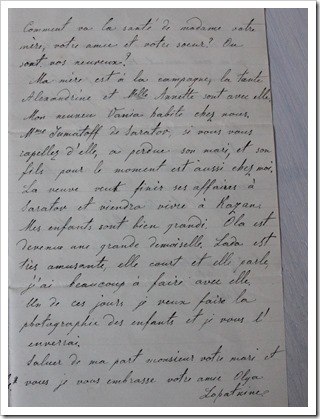 Comment va la santé de madame votre
mère, votre amie et votre sœur? Où
sont vos neuveux?
Ma mère est à la campagne, la tante
Alexandrine et Mlle Annette sont avec elle,
Mon neuveu Vania habite chez nous.
Mme Jumatoff de Saratov, si vous vous
rapellez d'elle, a perdue son mari, et son
fils pour le moment est aussi chez moi.
La veuve veut finir ses affaires à
Saratov et viendra vivre à Kazan.
Mes enfants sont bien grandi. Ola est
devenue une grande demoiselle. Lada est
très amusante, elle court et elle parle
j'ai beaucoup à faire avec elle.
Un de ces jours je veux faire la
photographie des enfants et je vous l'
enverrai.
Saluer de ma part monsieur votre mari et
vous je vous embrasse votre amie Olga
Lapatnine